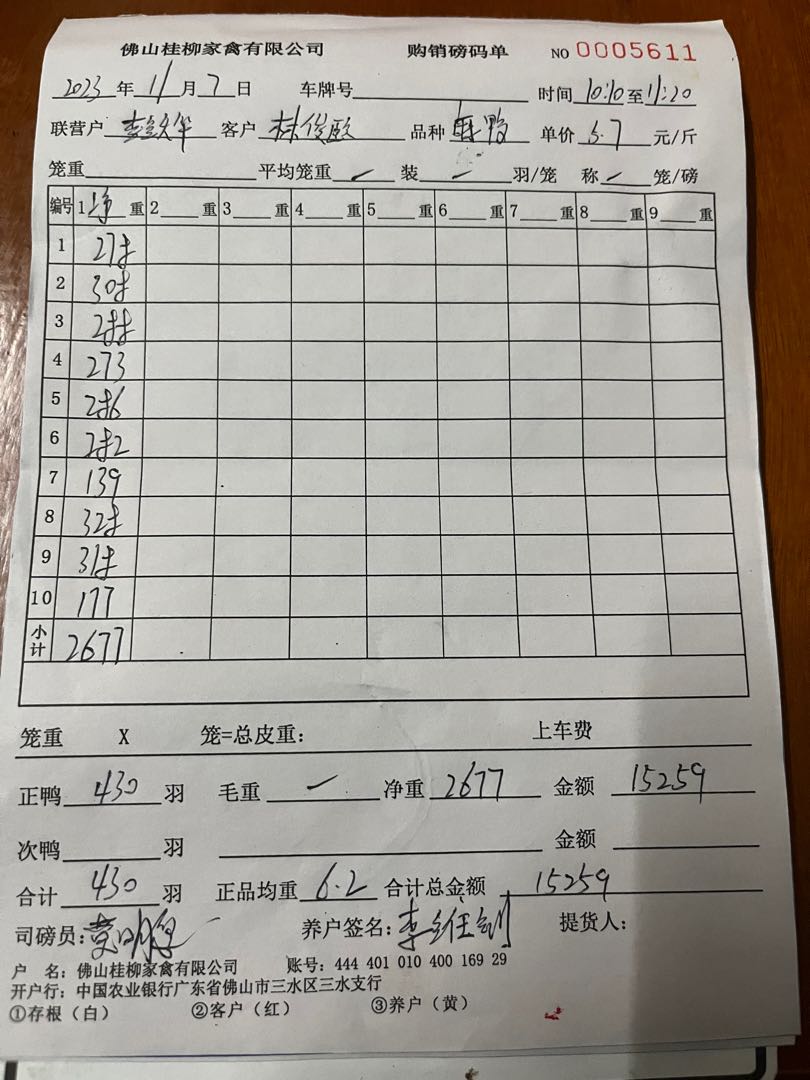 佛山桂柳家禽有限公司 购销磅码单 NO 0005611
2023 年 11 月 7 日 车牌号 时间 10:10 至 11:20
联营户 客户 林俊 品种 麻鸭 单价 5.7 元/斤
笼重 平均笼重 — 装 — 羽/笼 称 — 笼/磅
编号 1 净 重 2 重 3 重 4 重 5 重 6 重 7 重 8 重 9 重
1 278
2 308
3 288
4 273
5 286
6 282
7 139
8 328
9 318
10 177
小计 2677
笼重 X 笼=总皮重： 上车费
正鸭 430 羽 毛重 — 净重 2677 金额 15259
次鸭 羽 金额
合计 430 羽 正品均重 6.2 合计总金额 15259
司磅员： 养户签名：李 提货人：
户 名：佛山桂柳家禽有限公司 账号：444 401 010 400 169 29
开户行：中国农业银行广东省佛山市三水区三水支行
①存根（白） ②客户（红） ③养户（黄）